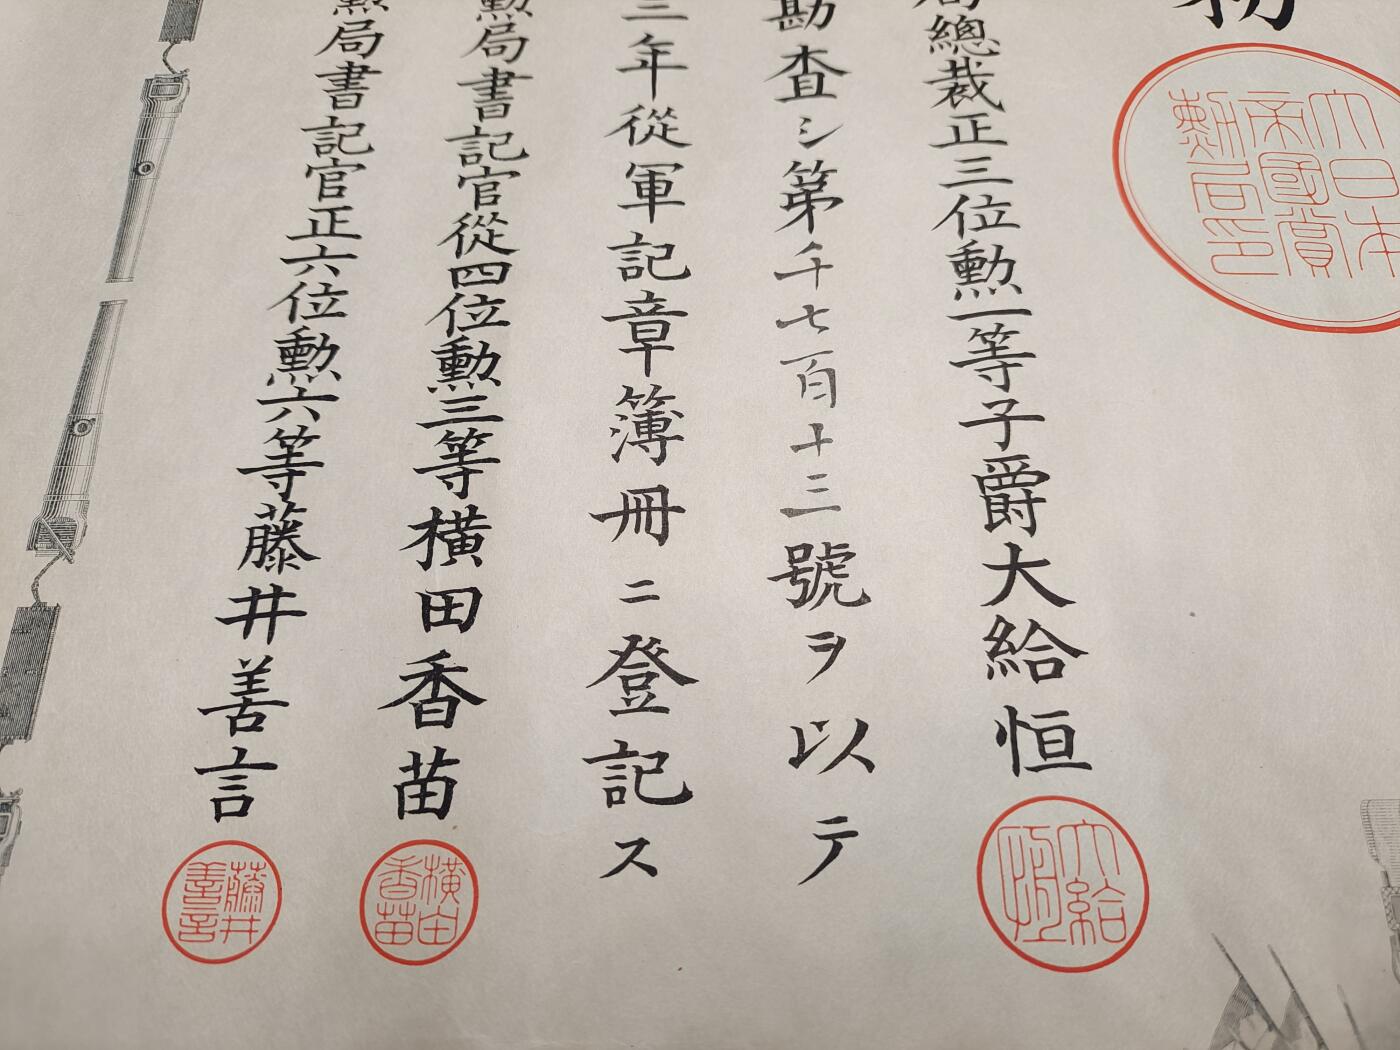 大日本
帝國賞
勲局印
局總裁正三位勲一等子爵大給恒
大給
恒
勘査シ第千七百十三號ヲ以テ
三年從軍記章簿冊ニ登記ス
勲局書記官從四位勲三等横田香苗
横田
香苗
勲局書記官正六位勲六等藤井善言
藤井
善言